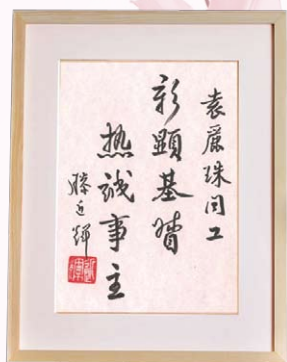 袁麗珠同工
彰顯基督
热誠事主
滕近輝